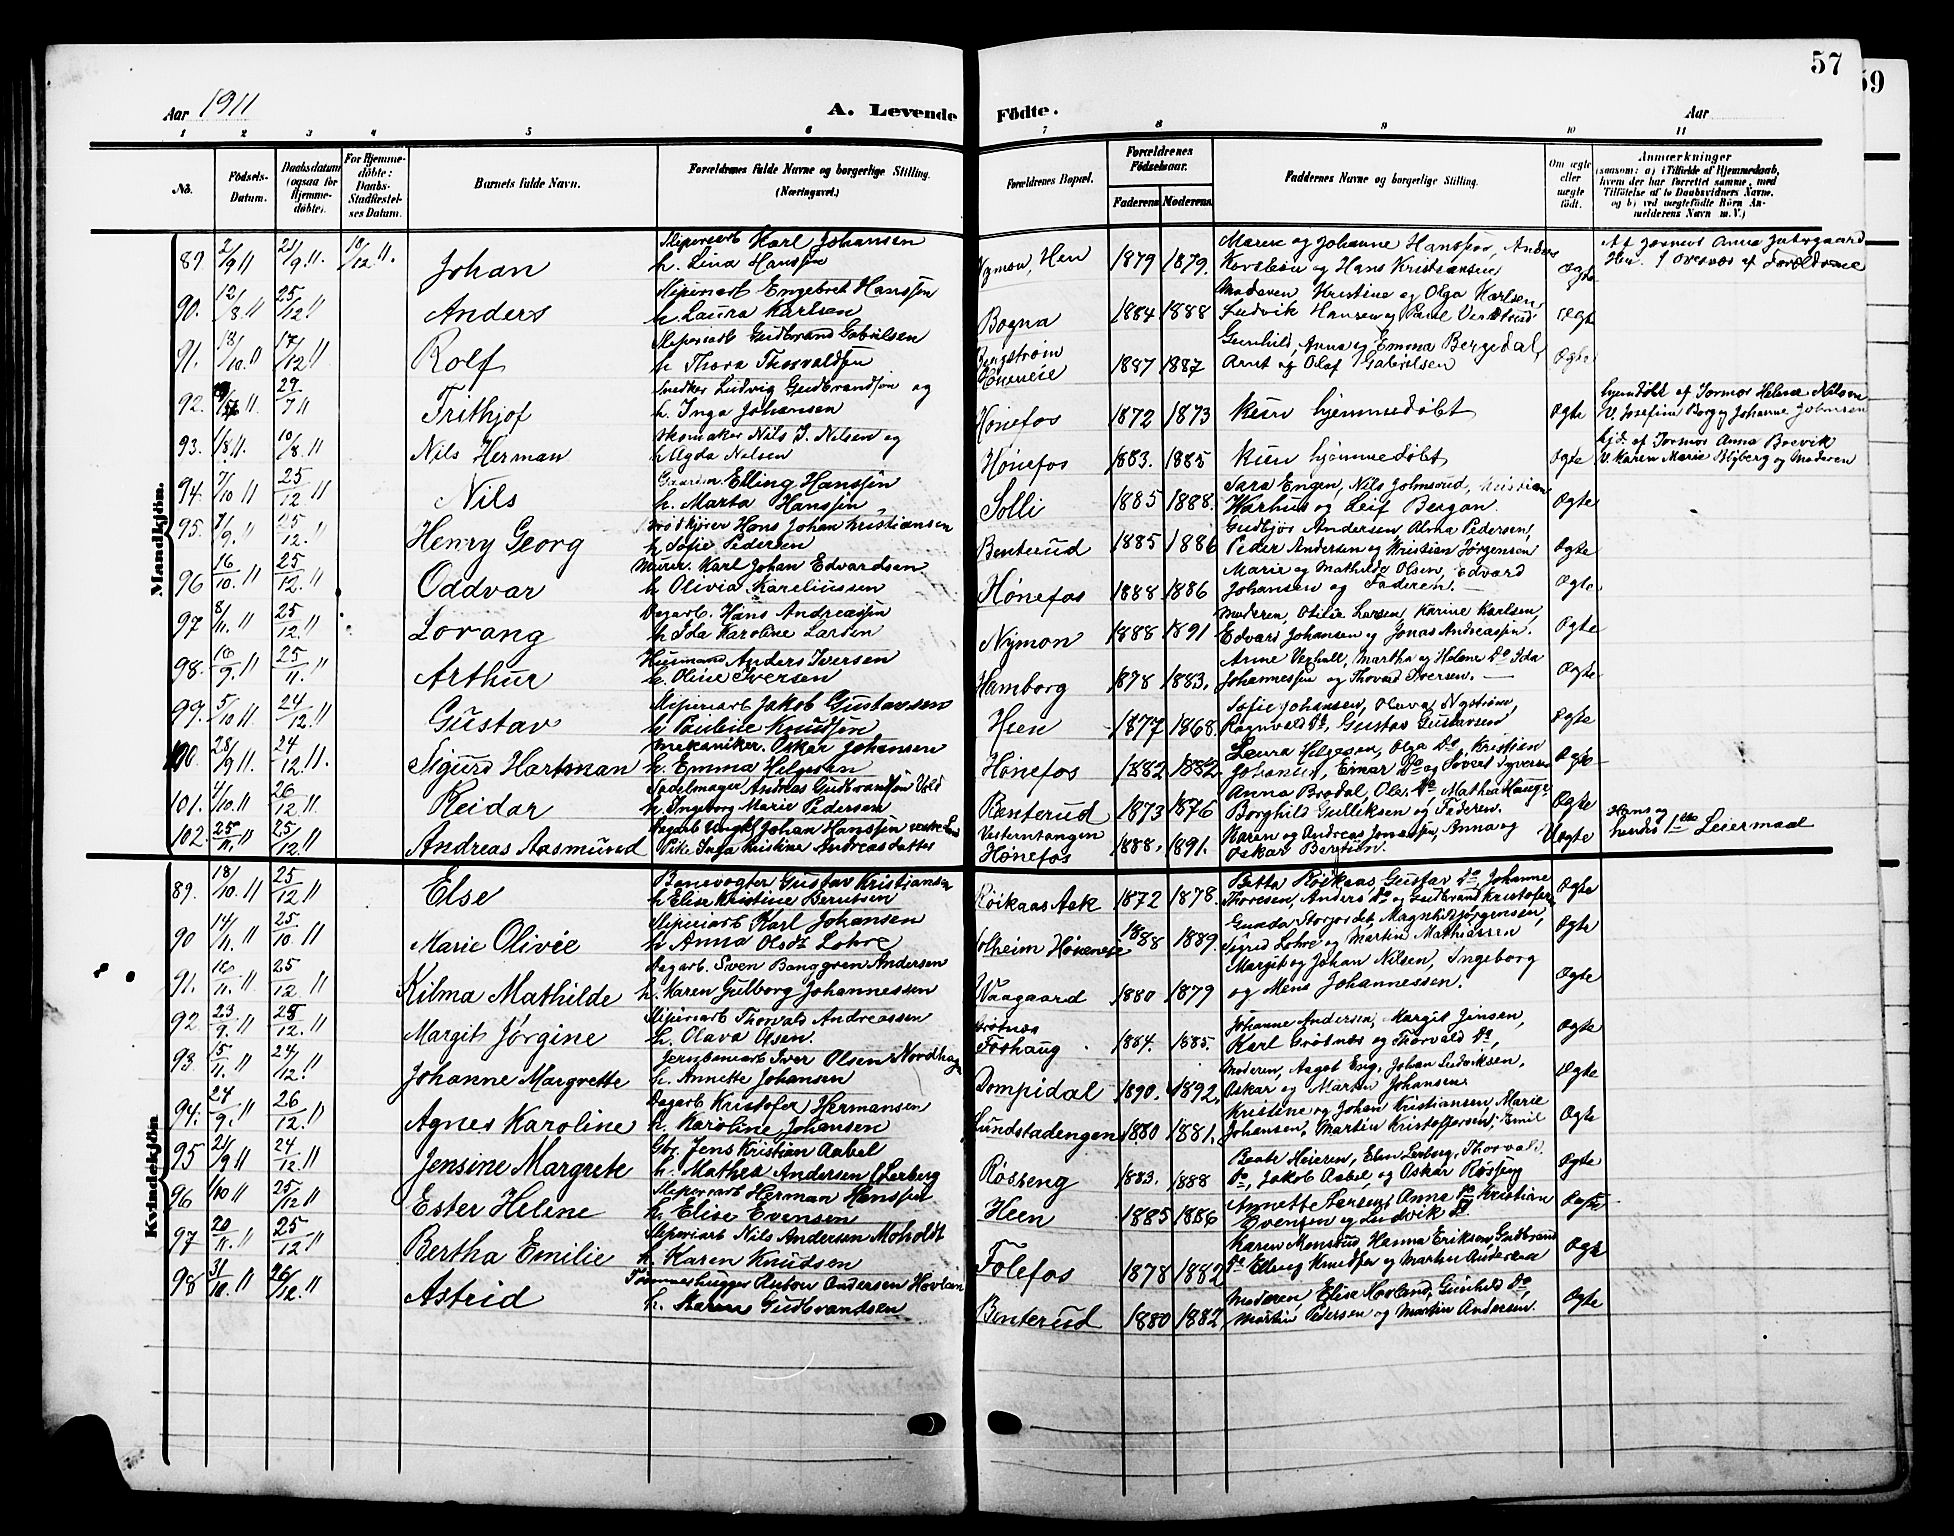 57
59
Aar 1911
A. Levende Fødte.
Aar
1 2 3 4 5 6 7 8 9 10 11
No. Fødsels-Datum. Daabsdatum (ogsaa for Hjemme-døbte). For Hjemme-døbte: Daabs-Stadfæstel-ses Datum. Barnets fulde Navn. Forældrenes fulde Navne og borgerlige Stilling. (Næringsvei.) Forældrenes Bopæl. Forældrenes Fødselsaar. Faderens Moderens. Faddernes Navne og borgerlige Stilling. Om ægte eller uægte født. Anmærkninger (saasom: a) i Tilfælde af Hjemmedaab, hvem der har forrettet samme, med Tilføielse af to Daabsvidners Navne, og b) ved uægtefødte Børn An-melderens Navn m. V.)
Mandkjøn.
89 2/9 11 21/9 11. 10/12 11. Johan Sliperiarb Karl Johansen h. Lina Hanssen Nymon, Hen 1879 1879. Maren og Johanne Hanssen, Anders og Hans Kristiansen Ægte Af Jormor Anna
90. 12/8 11 25/12 11 Anders Sliperiarb Engebret Hanssen h. Laura Karlsen Bogna 1884 1888 Moderen Kristine og Olga Karlsen, Ludvik Hansen og Paul Ægte
91. 18/10. 11 17/12 11 Rolf Sliperiarb Gudbrand Gabrilsen h Thora Thorvaldsen Høneneie 1887 1887 Gunhild, Anna og Emma Bergedal, Arnt og Olaf Gabrielsen Ægte
92. 11. 29/7 11 Frithjof Snedker Ludvig Gudbrandsen og h. Inga Johansen Hønefos 1872 1873 kun hjemmedøbt Ægte hjemdøbt af Jormor Helene Nilsen V. Josefine Borg og Johanne
93. 1/8 11. 10/8. 11 Nils Herman Skomaker Nils J. Nilsen og h Agda Nilsen Hønefos 1883. 1885 kun hjemmedøbt Ægte hjd. af Jormor Anna Brevik V. Karen Marie Myberg og Moderen
94. 7/10 11 25/12 11 Nils Gaardm. Elling Hanssen h. Marta Hanssen Solli 1885 1888. Sara Engen, Nils og Leif Bergan. Ægte
95. 7/9. 11 25/12. 11 Henry Georg Brødkjører Hans Johan Kristiansen h Sofie Pedersen Benterud 1885 1886 Gudbjør Andersen, Alma Pedersen, Peder Andersen og Kristian Jørgensen Ægte
96 16/10. 11 25/12. 11 Oddvar Murer. Karl Johan Edvardsen h Olivia Kareliussen Hønefos 1888 1886 Marie og Mathilde Olsen, Edvard Johansen og Faderen. Ægte
97 8/11. 11 25/12. 11 Lorang Dagarb. Hans Andreassen h Ida Karoline Larsen Nymon 1888 1891 Moderen, Otilie Larsen, Karine Karlsen, Edvard Johansen og Jonas Andreassen. Ægte
98. 16/9. 11 25/11. 11 Arthur Husmand Anders Iversen h. Oline Iversen Hamborg 1878 1883. Anne Veghall, Martha og Helene Do Ida Johannessen og Thorvald Iversen. Ægte
99. 5/10 11 24/12. 11 Gustav Sliperiarb Jakob Gustavsen h Pauline Knudsen Heen 1877 1868. Sofie Johansen, Olava Nystrøm, Ragnvald Do, Gustav Gustavsen Ægte
100. 28/9 11. 24/12. 11. Sigurd Hartman Mekaniker. Oskar Johansen h. Emma Helgesen Hønefos 1882 1882. Laura Helgesen, Olga Do, Kristian Johansen, Einar Do og Syversen Ægte
101. 4/10. 11 26/12 11. Reidar Sadelmager Andreas Gudbrandsen Vold h. Ingeborg Marie Pedersen Benterud 1873 1876 Anna Brodal, Ole Do Mathea Hauge Borghild Gulliksen og Faderen. Ægte
102. 25/11. 11 25/12. 11 Andreas Aasmund Dagarb Ungkl Johan Hanssen Pike Inga Kristine Andreasdatter Vesterntangen Hønefos 1888. 1891. Karen og Andreas Jonassen, Anna og Oskar Berntsen. Uægte Hans og hendes 1ste Leiermaal
Kvindekjøn
89. 18/10. 11 25/12 11 Else Banevogter Gustav Kristiansen h Elise Kristine Berntsen Røikaas Ask 1872 1878. Betta Røikaas, Gustav Do, Johanne Thoresen, Anders Do og Gudbrand Kristofersen Ægte
90 14/11. 11 25/10. 11 Marie Olivie Sliperiarb Karl Johansen h Anna Olsdt Lohre Solheim Høneneie 1888 1889. Gunda Storjordet, Magnhild Jørgensen, Sigrid Lohre og Martin Mathiassen Ægte
91. 16/11. 11 25/12. 11 Kilma Mathilde Dagarb. Sven Banggren Andersen h. Karen Gulborg Johannessen Vaagaard 1880 1879 Margit og Johan Nilsen, Ingeborg og Mens Johannessen. Ægte
92 23/9. 11 28/12. 11 Margit Jørgine Sliperiarb Thorvald Andreassen h. Olava Olsen. Grøtnæs Foshaug 1884. 1885. Johanne Andersen, Margit Jensen, Karl Grøtnæs og Thorvald Do, Ægte
93. 15/11. 11 24/12. 11 Johanne Margrette Jernbanearb Iver Olsen Nordhagen h. Annette Johansen Dompidal 1890. 1892. Moderen, Aagot Eng, Johan Ludviksen, Oskar og Martin Johansen. Ægte
94. 24/9. 11 26/12. 11 Agnes Karoline Dagarb Kristofer Hermansen h. Karoline Johansen Lundstadengen 1880 1881. Kristine og Johan Kristiansen, Marie Johansen, Martin Kristoffersen, Emil Ægte
95 21/9 11 24/12. 11 Jensine Margrete Gbr. Jens Kristian Aabel h. Mathea Andersen Lerberg Røsseng 1883. 1888 Beate Heieren, Elen Lerberg, Thorvald Do, Jakob Aabel og Oskar Røsseng Ægte
96 1/10 11 25/12 11 Ester Helene Sliperiarb Herman Hanssen h. Elise Evensen Heen 1885 1886 Annette Larsen, Anna Do Kristian Evensen og Ludvik Do. Ægte
97 20/11. 11 25/12 11 Bertha Emilie Sliperiarb Nils Andersen Moholdt h. Karen Knudsen Follefos 1878 1882 Karen Monsrud, Hanna Eriksen Gudbrand Do Elling Knudsen og Martin Andersen Ægte
98 31/10. 11 26/12. 11 Astrid Tømmerhugger Anton Andersen Hovland h. Maren Gudbrandsen Benterud 1880 1882 Moderen, Elise Hovland, Gunhild Do, Martin Pedersen og Martin Andersen. Ægte